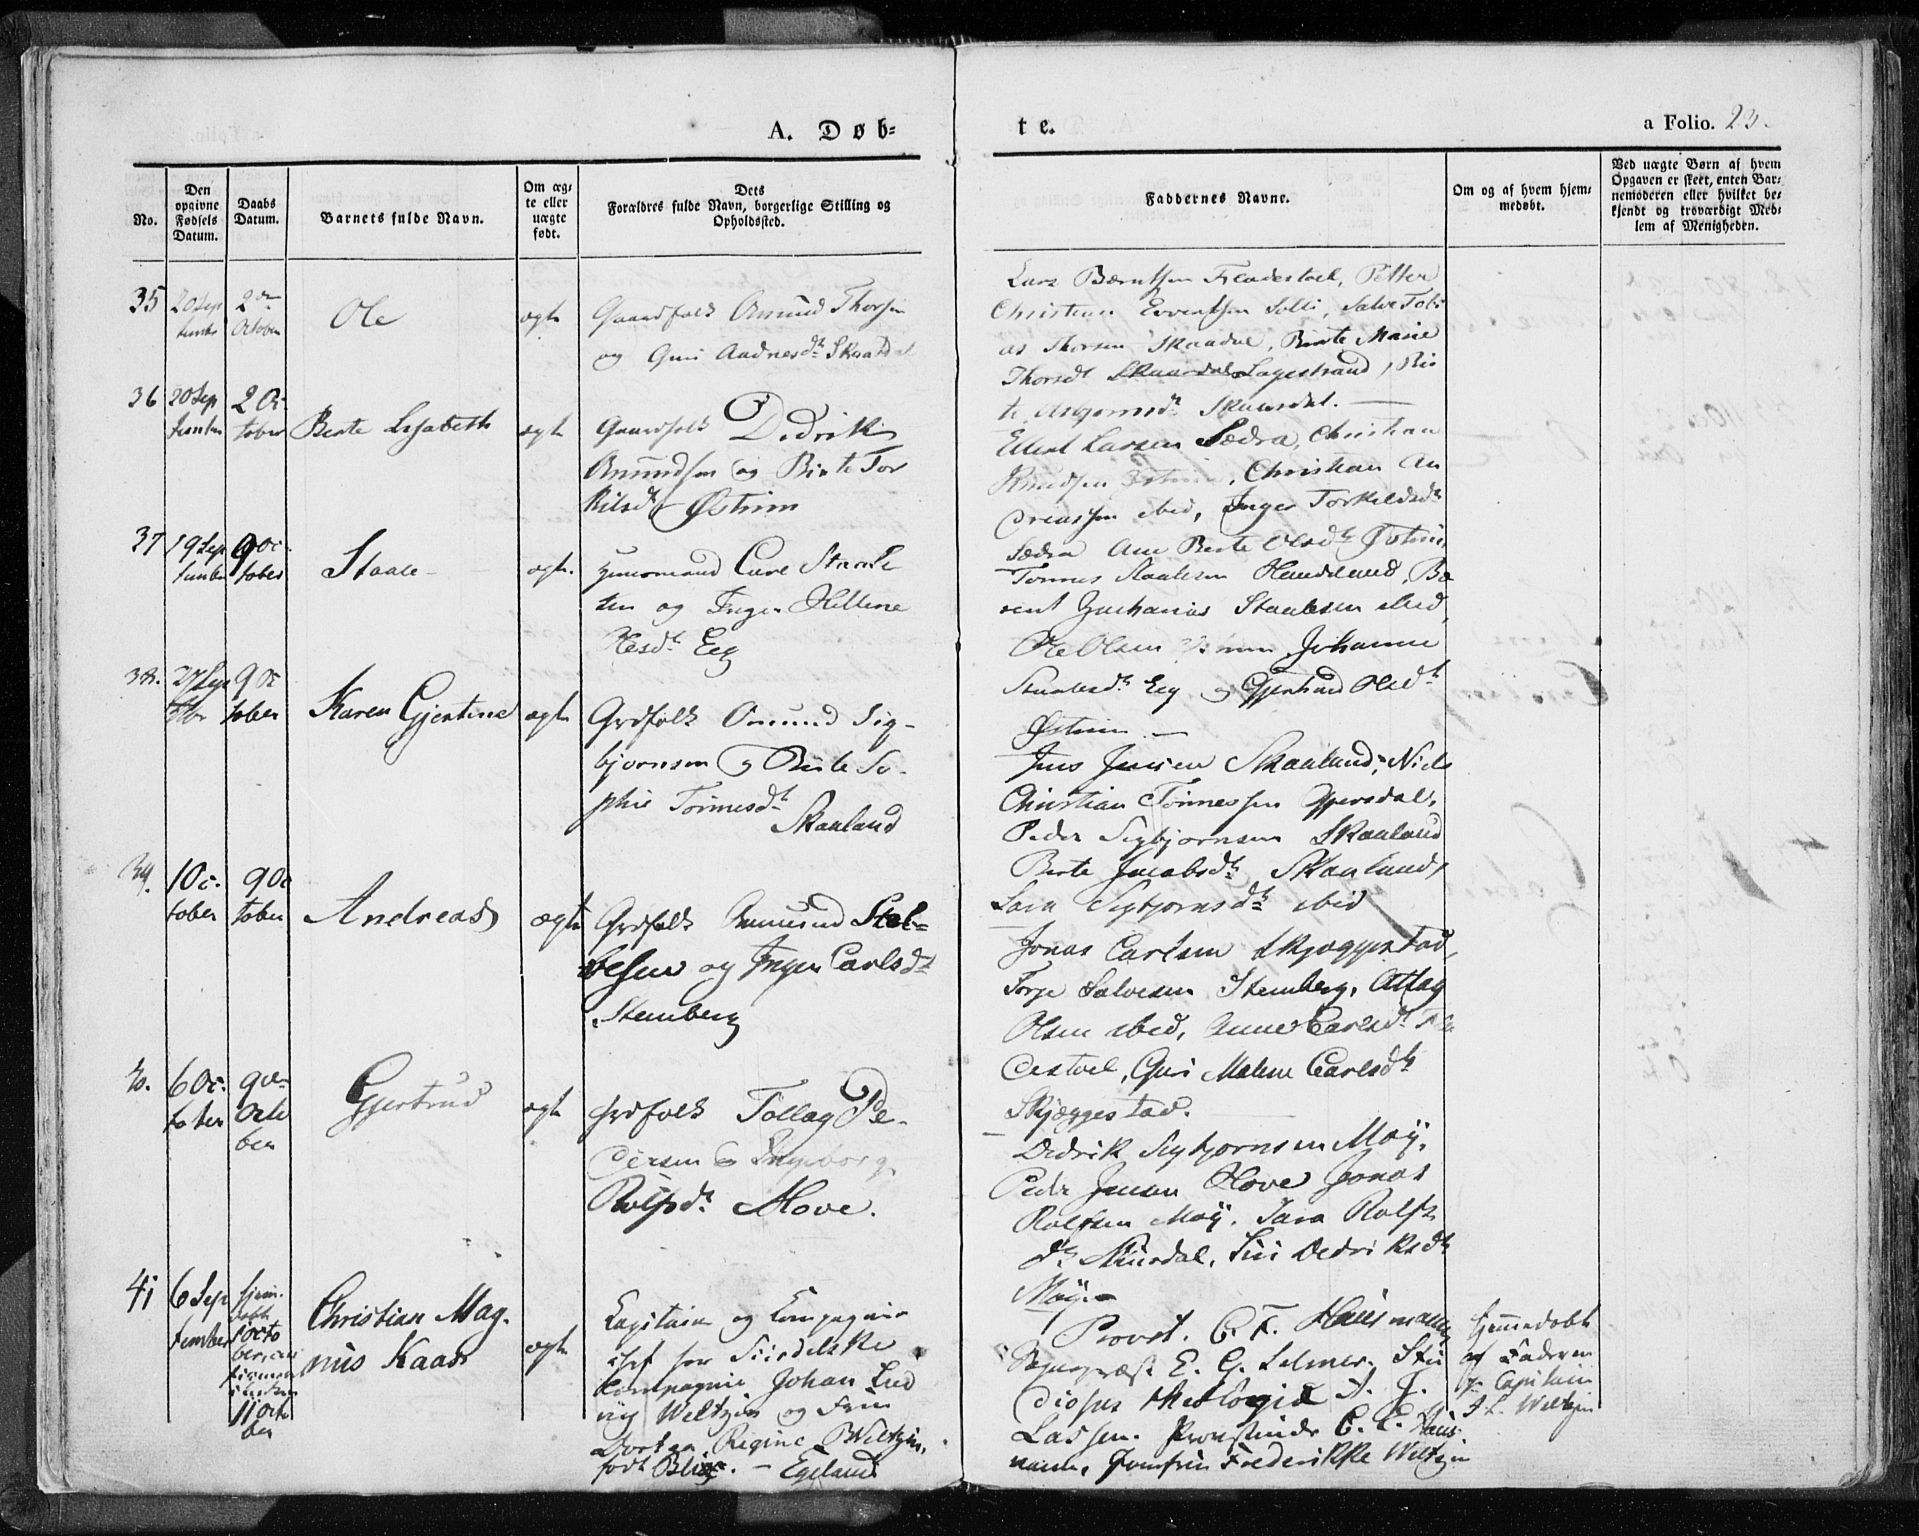 A. Døb-
te.
a Folio. 23.
No.
Den opgivne Fødsels Datum.
Daabs Datum.
Barnets fulde Navn.
Om ægte eller uægte født.
Dets Forældres fulde Navn, borgerlige Stilling og Opholdssted.
Faddernes Navne.
Om og af hvem hjemmedøbt.
Ved uægte Børn af hvem Opgaven er skeet, enten Barnemoderen eller hvilket bekjendt og troværdigt Medlem af Menigheden.
35
20 Sep
tember
2den
October
Ole
ægte
Gaardfolk Omund Thorsen
og Guri Aadnesdt Skaardal
Lars Berntsen Fladestoel, Petter
Christian Evertsen Solli, Salve Tobi
as Thorsen Skaardal, Berte Marie
Thorsdt Skaardal Lagestrand, Ber
te Asbjørnsdt Skaardal.
36
20 Sep
tember
2 Oc
tober
Berte Lisabeth
ægte
Gaardfolk Didrik
Omundsen og Birte Tor
kilsdt Østrim
Eilert Larsen Sædra, Christian
Knudsen Østrim, Christian An
dreassen ibid, Inger Torkeldsdt
Sædra Ane Berte Olsdt Østrim,
37
19 Sep
tember
9 Oc
tober
Staale
ægte.
Huusmand Carl Staale
sen og Inger Hellene
Olesdt Eeg
Tønnes Staalesen Haadeland, Be
rent Zacharias Staalesen ibid,
Ole Olsen Østrim Johanne
Staalesdt Eeg og Gjertrud Olsdt
Østrim
38.
27 Sep
tbr
9 Oc
tober
Karen Gjertine
ægte
Grdfolk Omund Sig-
bjørnsen og Birte So-
phie Tønnesdt
Skaaland
Jens Jensen Skaaland, Niels
Christian Tønnessen Gjersdal,
Peder Sigbjørnsen Skaaland
Berte Jacobsdt Skaaland,
Sara Sigbjørnsdt ibid
39.
1 Oc-
tober
9 Oc
tober
Andreas
ægte
Grdfolk Ommund Stol-
vesen og Inger Carlsdt
Stemberg
Jonas Carlsen Skjæggestad,
Torje Salvesen Stemberg, Attlag
Olsen ibid, Anne Carlsdt Fla
destoel, Guri Malene Carlsdt
Skjæggestad.
40.
6 Oc-
tober
9de
Octo
ber
Gjertrud
ægte
Grdfolk Tollag Pe-
dersen og Ingeborg
Rolfsdt Hove.
Didrik Sigbjørnsen Moÿ,
Peder Jensen Hove Jonas
Rolfsen Moÿ. Sara Rolfs
dt Skaardal, Siri Dedriksdt
Moÿ
41
6 Sep
tember
hjem-
døbt
1 Octo
ber, con
firmeret
i kirken
11 Octo
ber
Christian Mag-
nus Kaas
ægte
Capitain og Compagnie
chef for Siredalske
Compagnie Johan Lud
vig Weltzin og Frue
Dorthea Regine Weltzin,
født Blix. - Egeland
Provst. C. F. Hausmann,
Sognepræst E. G. Selmer. Stu
diosus theologiæ A. J.
Lassen. Provstinde C. E. Haus
mann, Jomfru Frederikke Weltzin
hjemmedøbt
af Faderen
Hr Capitain
J. L. Weltzin